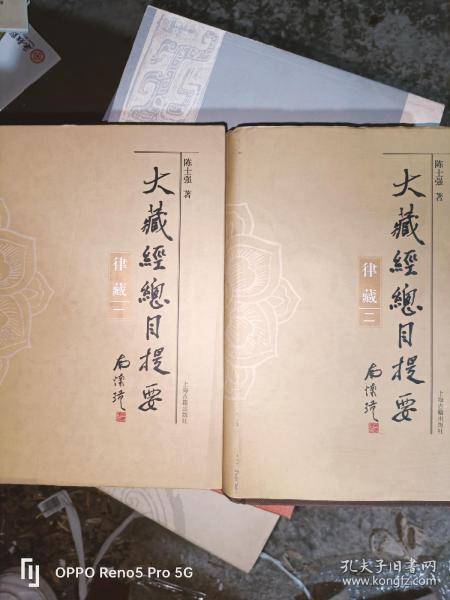 陈士强 著
大藏經總目提要
律藏一
南懷瑾
上海古籍出版社
陈士强 著
大藏經總目提要
律藏二
南懷瑾
上海古籍出版社
OPPO Reno5 Pro 5G
孔夫子旧书网
www.kongfz.com